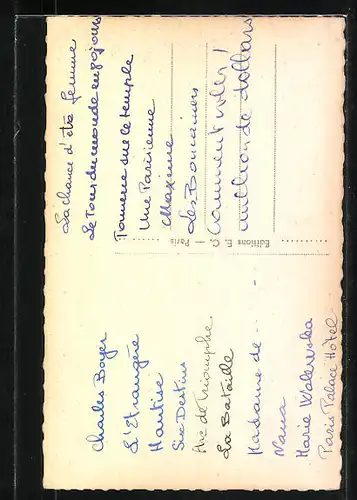 Charles Boyer
L'Etrangère
Hantise
Six Destins
Arc de Triomphe
La Bataille
Madame de ... -
Nana
Marie Walewska
Paris Palace Hôtel
La chance d'être femme
Le Tour du monde en 80 jours
Tonnerre sur le temple
Une Parisienne
Maxime
Les Boucaniers
Comment voler 1
million de dollars
Editions E. C. — Paris